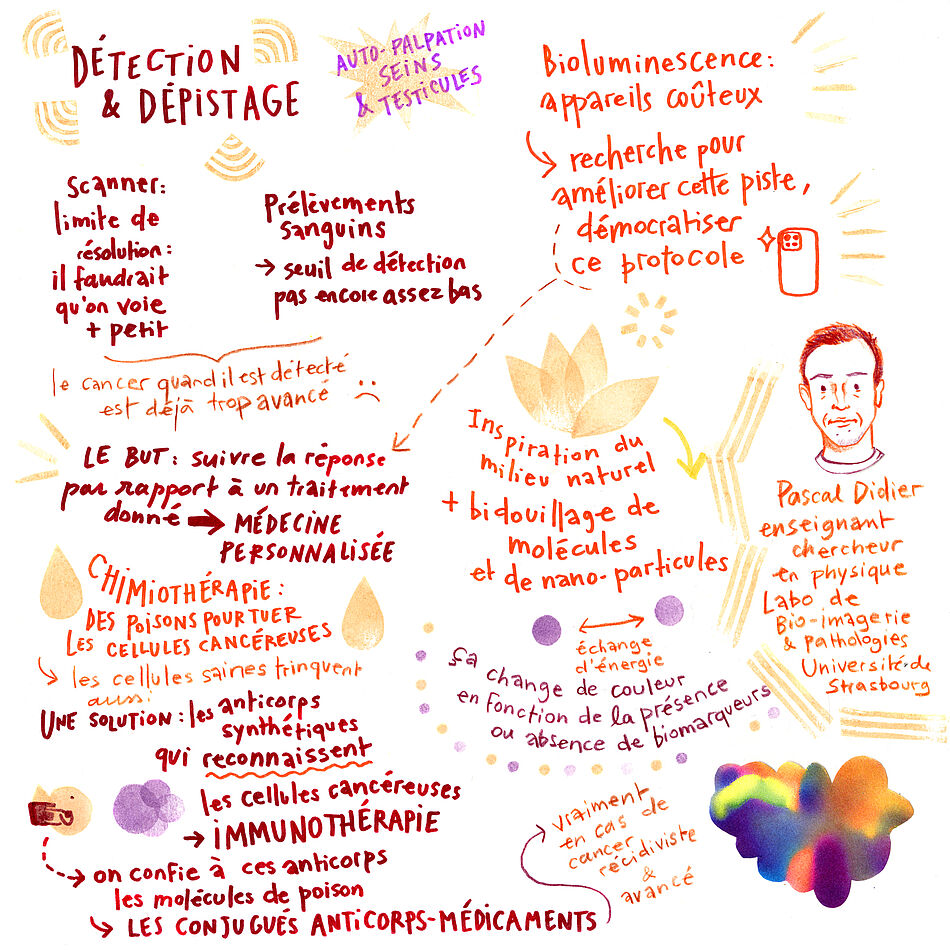 DÉTECTION
& DÉPISTAGE
AUTO-PALPATION
SEINS
& TESTICULES
Scanner:
limite de
résolution:
il faudrait
qu'on voie
+ petit
Prélèvements
sanguins
→ seuil de détection
pas encore assez bas
le cancer quand il est détecté
est déjà trop avancé :(
Bioluminescence:
appareils coûteux
↳ recherche pour
améliorer cette piste,
démocratiser
ce protocole
LE BUT: suivre la réponse
par rapport à un traitement
donné → MÉDECINE
PERSONNALISÉE
Inspiration du
milieu naturel
+ bidouillage de
molécules
et de nano-particules
échange
d'énergie
ça change de couleur
en fonction de la présence
ou absence de biomarqueurs
Pascal Didier
enseignant
chercheur
en physique
Labo de
Bio-imagerie
& pathologies
Université de
Strasbourg
CHIMIOTHÉRAPIE:
DES POISONS POUR TUER
LES CELLULES CANCÉREUSES
↳ les cellules saines trinquent
aussi
UNE SOLUTION: les anticorps
synthétiques
qui reconnaissent
les cellules cancéreuses
→ IMMUNOTHÉRAPIE
on confie à ces anticorps
les molécules de poison
↳ LES CONJUGUÉS ANTICORPS-MÉDICAMENTS
vraiment
en cas de
cancer
récidiviste
&
avancé